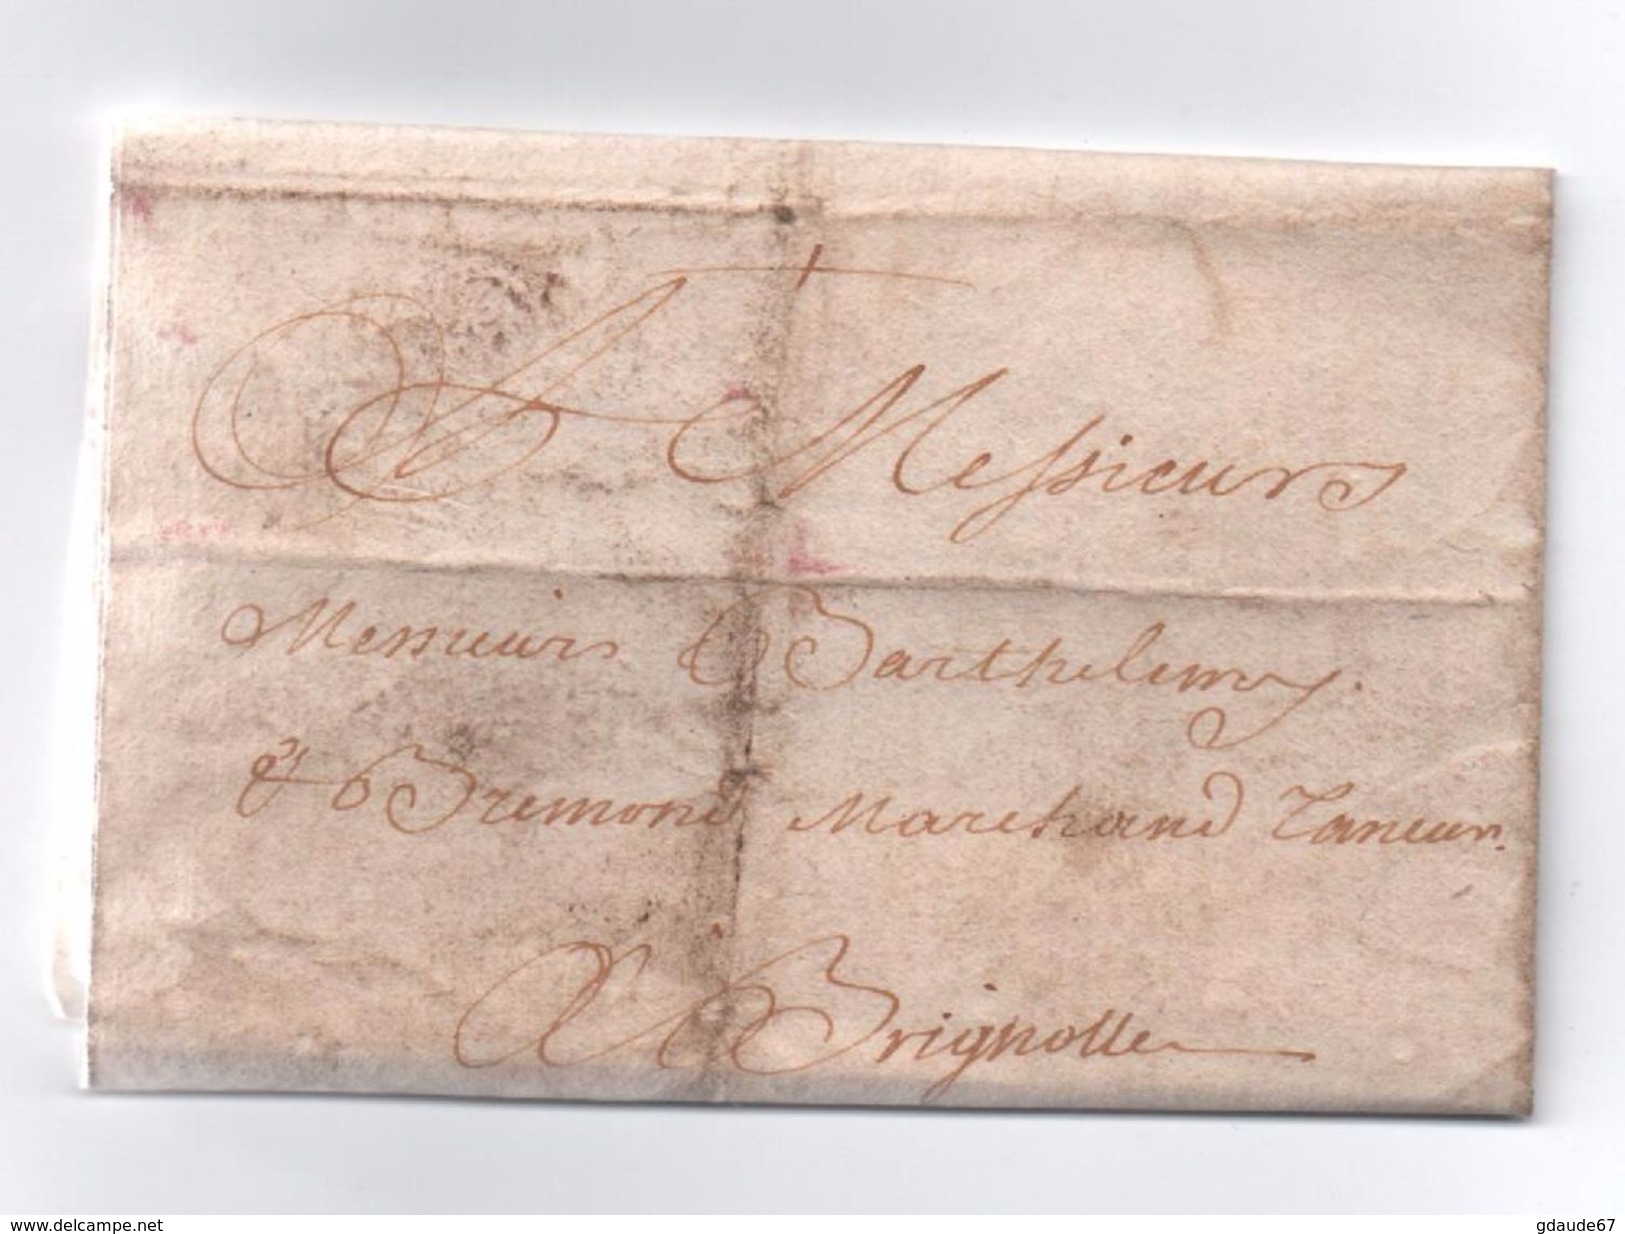 A Messieurs
Messieurs Barthelemy.
& Bremond Marchand Taneurs.
A Brignolle
www.delcampe.net
gdaude67